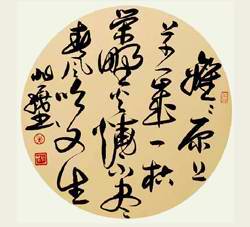 離離原上
草一歲一枯
榮野火燒不盡
春風吹又生